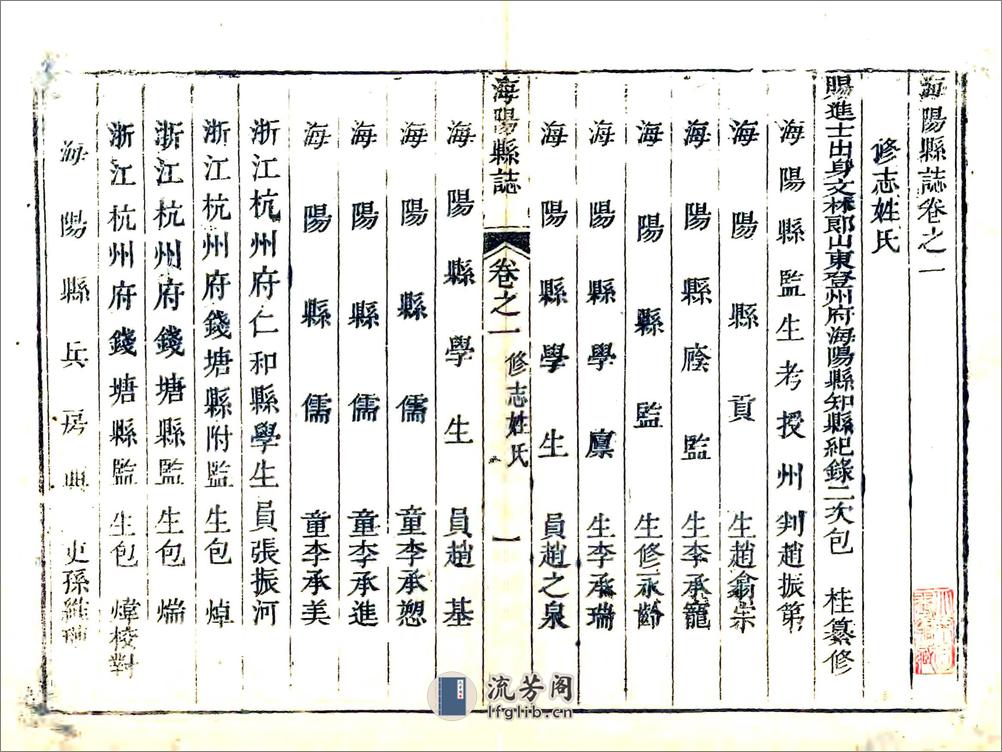 海陽縣誌卷之一
修志姓氏
賜進士出身文林郎山東登州府海陽縣知縣紀錄二次包 桂纂修
海陽縣監生考授州判趙振第
海陽縣貢生趙翕崇
海陽縣廕監生李承寵
海陽縣監生修永齡
海陽縣學廩生李承瑞
海陽縣學生員趙之泉
海陽縣誌 卷之一 修志姓氏 一
海陽縣學生員趙 基
海陽縣儒童李承恕
海陽縣儒童李承進
海陽縣儒童李承美
浙江杭州府仁和縣學生員張振河
浙江杭州府錢塘縣附監生包 焯
浙江杭州府錢塘縣監生包 煓
浙江杭州府錢塘縣監生包 煒校對
海陽縣兵房典吏孫維
流芳阁
lfglib.cn